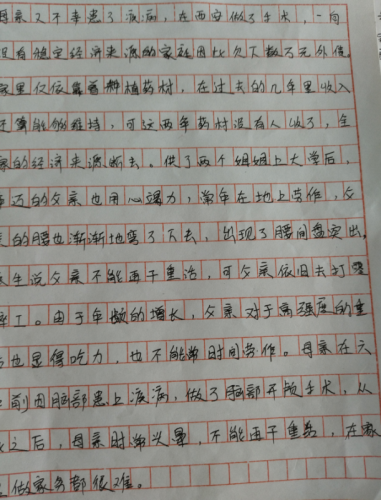 母亲又不幸患了疾病，在西安做了手术，一向
没有稳定经济来源的家庭因此欠下数万元外债，
家里仅依靠着种植药材，在过去的几年里收入
还算能够维持，可这两年药材没有人收了，全
家的经济来源断去。供了两个姐姐上大学后，
年迈的父亲也用心竭力，常年在地上劳作，父
亲的腰也渐渐地弯了下去，出现了腰间盘突出，
医生说父亲不能再干重活，可父亲依旧去打零
工。由于年龄的增长，父亲对于高强度的重
活也显得吃力，也不能长时间劳作。母亲在六
年前因脑部患上疾病，做了脑部开颅手术，从
此之后，母亲时常头晕，不能再干重活，在家
做家务都很难。